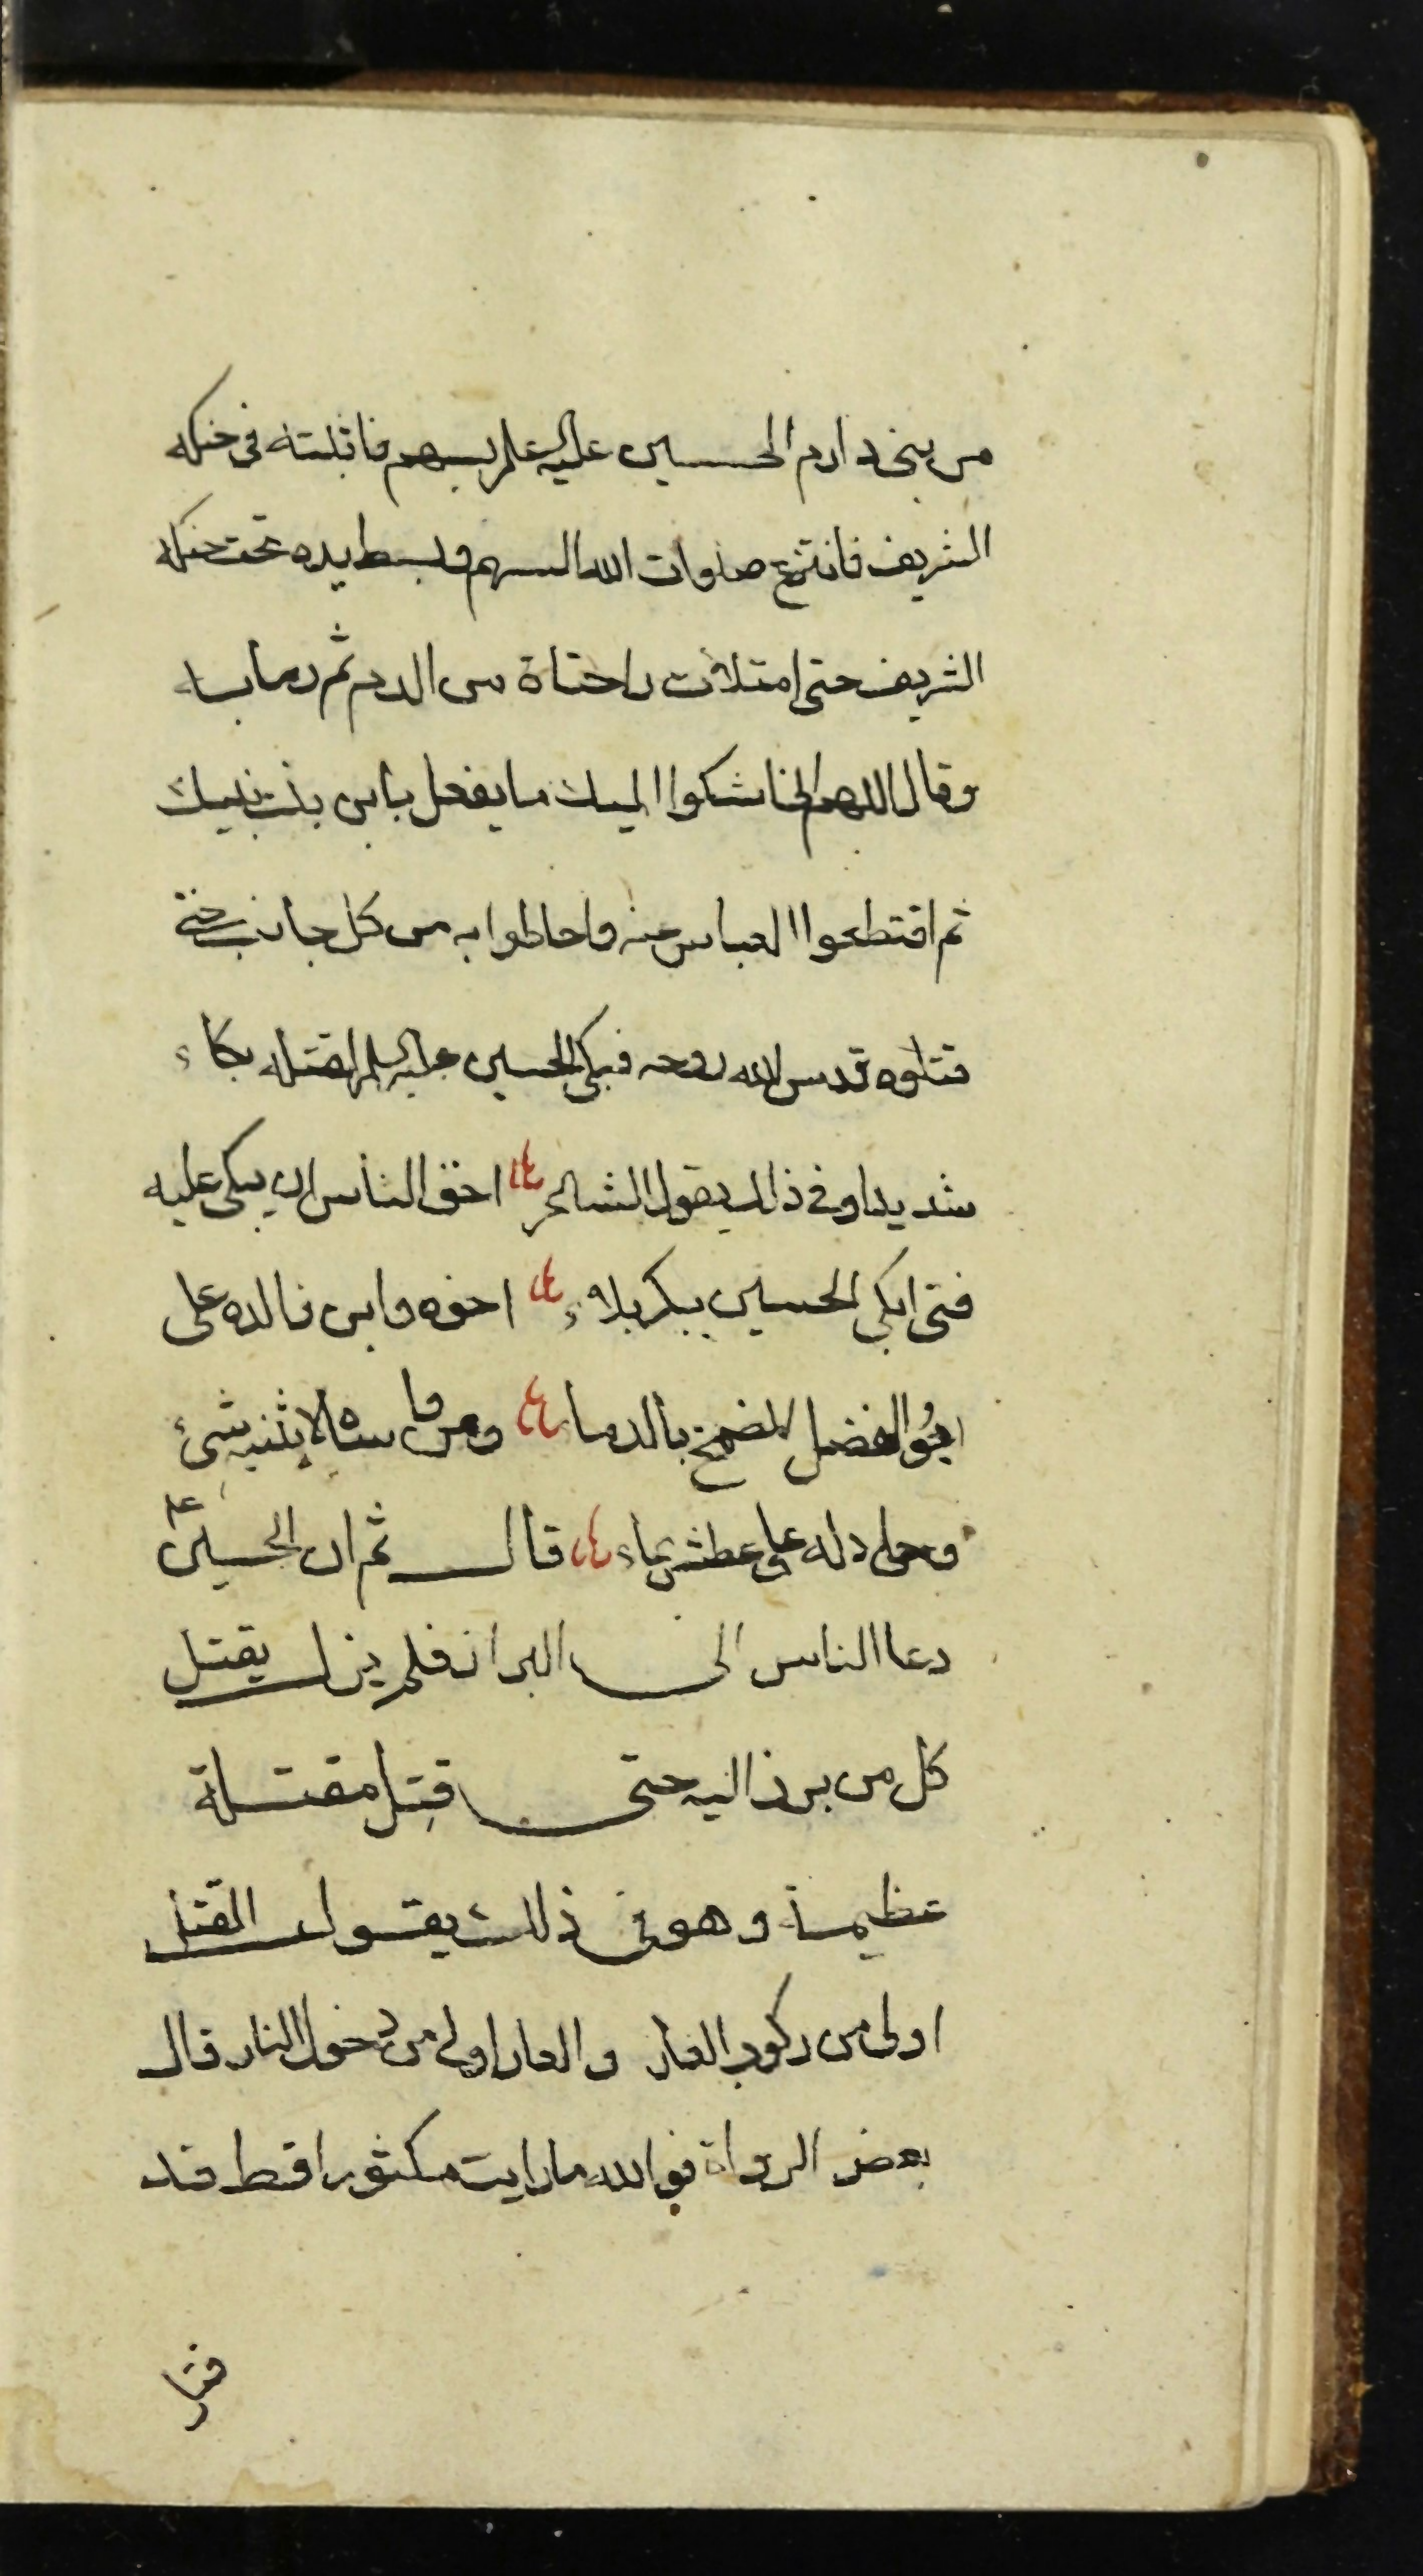 من بني دارم الحسين عليه السلم بسهم فاثبتته في حنكه
الشريف فانتزع صلوات الله السهم وبسط يده تحت حنكه
الشريف حتى امتلات راحتاة من الدم ثم رما به
وقال اللهم اني اشكوا اليك ما يفعل بابن بنت نبيك
ثم اقتطعوا العباس عنه واحاطوا به من كل جانب حتى
قتلوه قدس الله روحه فبكى الحسين عليه السلم لقتله بكاء
شديدا وفي ذلك يقول الشاعر احق الناس ان يبكى عليه
فتى ابكى الحسين بكربلاء اخوه وابن والده على
ابو الفضل المضمخ بالدما ومن واساه لا يثنيه شئ
وجادله على عطش بماء قال ثم ان الحسين ع
دعا الناس الى البراز فلم يزل يقتل
كل من برز اليه حتى قتل مقتلة
عظيمة وهو في ذلك يقول القتل
اولى من ركوب العار والعار اولى من دخول النار قال
بعض الرواة فوالله ما رايت مكثورا قط قد